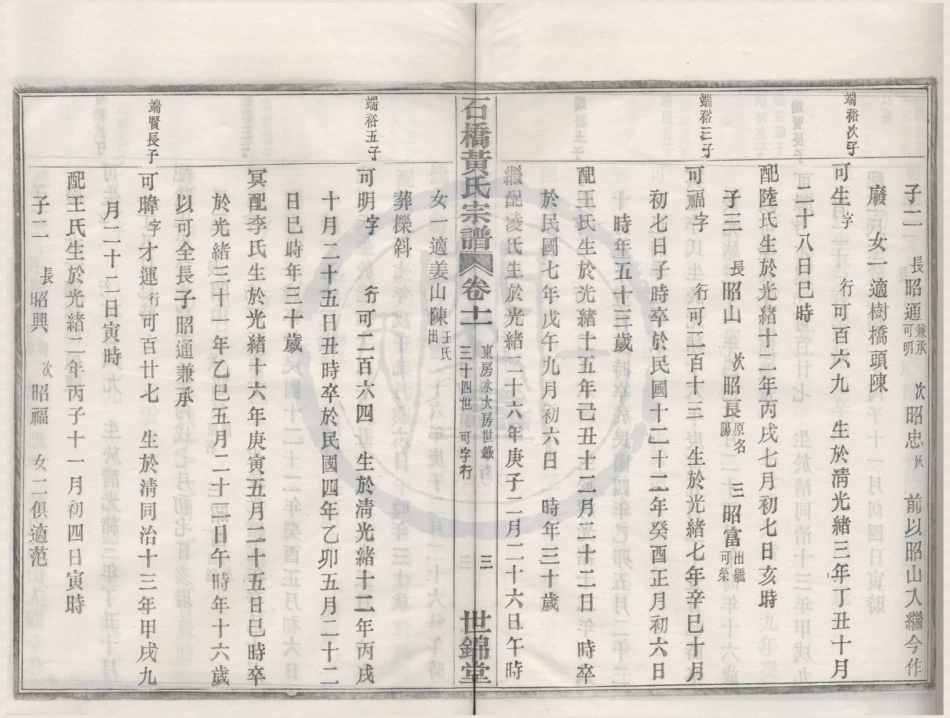 子二 長昭通兼承可明 次昭忠殀 前以昭山入繼今作
廢 女一適樹橋頭陳
端裕次子
可生字 行可百六九 生於清光緒三年丁丑十月
二十八日巳時
配陸氏生於光緒十二年丙戌七月初七日亥時
子三 長昭山 次昭良原名陽 三昭富出繼可榮
端裕三子
可福字 行可二百十三 生於光緒七年辛巳十月
初七日子時卒於民國二十二年癸酉正月初六日
時年五十三歲
配王氏生於光緒十五年己丑十二月二十二日
於民國七年戊午九月初六日 時年三十歲
繼配凌氏生於光緒二十六年庚子二月二十六日午時
石橋黃氏宗譜 卷十一 東房水大房世錄 三十四世 可字行 三 世錦堂
女一適姜山陳王氏出
葬櫟斜
端裕五子
可明字 行可二百六四 生於清光緒十二年丙戌
十月二十五日丑時卒於民國四年乙卯五月二十二
日巳時年三十歲
冥配李氏生於光緒十六年庚寅五月二十五日巳時卒
於光緒三十一年乙巳五月二十二日午時年十六歲
以可全長子昭通兼承
端賢長子
可暐字才運行可百廿七 生於清同治十三年甲戌九
月二十二日寅時
配王氏生於光緒二年丙子十一月初四日寅時
子二 長昭興 次昭福 女二俱適范